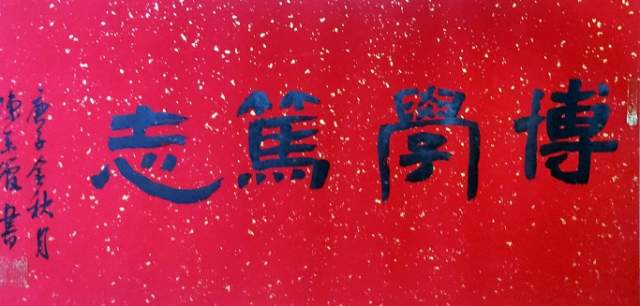 博學篤志
庚子金秋月
陳玉 書